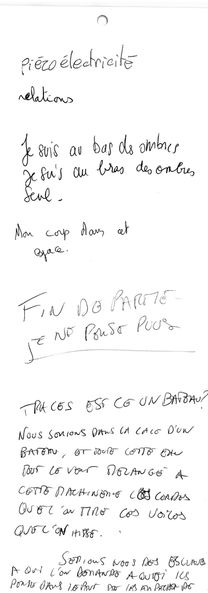 piézoélectricité
relations
Je suis au bas des ombres
Je suis au bras des ombres
Seul.
Mon corps dans cet
espace.
FIN DE PARTIE
JE NE PENSE PLUS
TRACES EST CE UN BATEAU?
NOUS SERIONS DANS LA CALE D'UN
BATEAU, ET TOUTE CETTE EAU
TOUT LE VENT MELANGÉ A
CETTE MACHINERIE LES CORDES
QUE L'ON TIRE CES VOILES
QUE L'ON HISSE.
SERIONS NOUS DES ESCLAVES
A QUI L'ON DEMANDE A QUOI ILS
DANS LE BUT DE LES EMPECHER DE